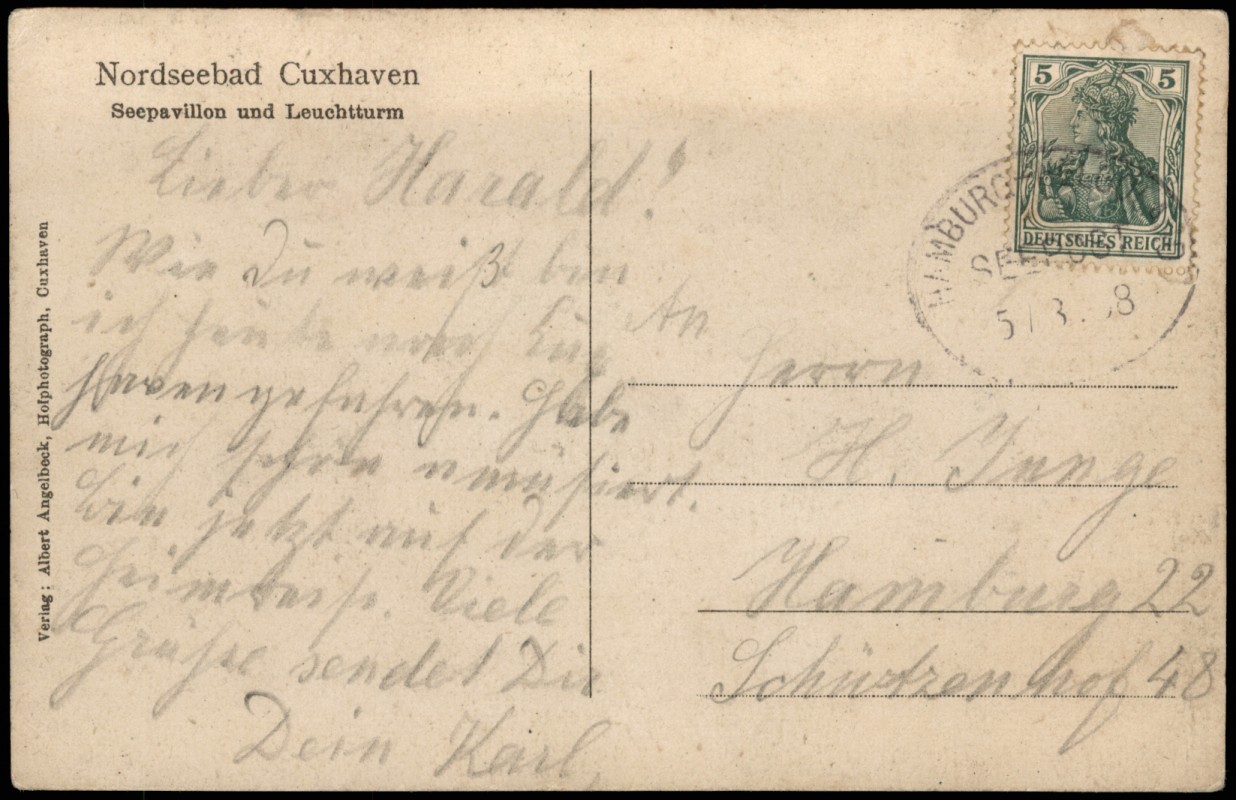 Nordseebad Cuxhaven
Seepavillon und Leuchtturm
Lieber Harald!
Wie Du weißt bin
ich heute nach Cux
haven gefahren. Habe
mich schön amüsiert.
Bin jetzt auf der
Heimreise. Viele
Grüße sendet Dir
Dein Karl.
Verlag: Albert Angelbeck, Hofphotograph, Cuxhaven
5 5
DEUTSCHES REICH
HAMBURG
SEEPOST
An
Herrn
H. Junge
Hamburg 22
Schützenhof 48